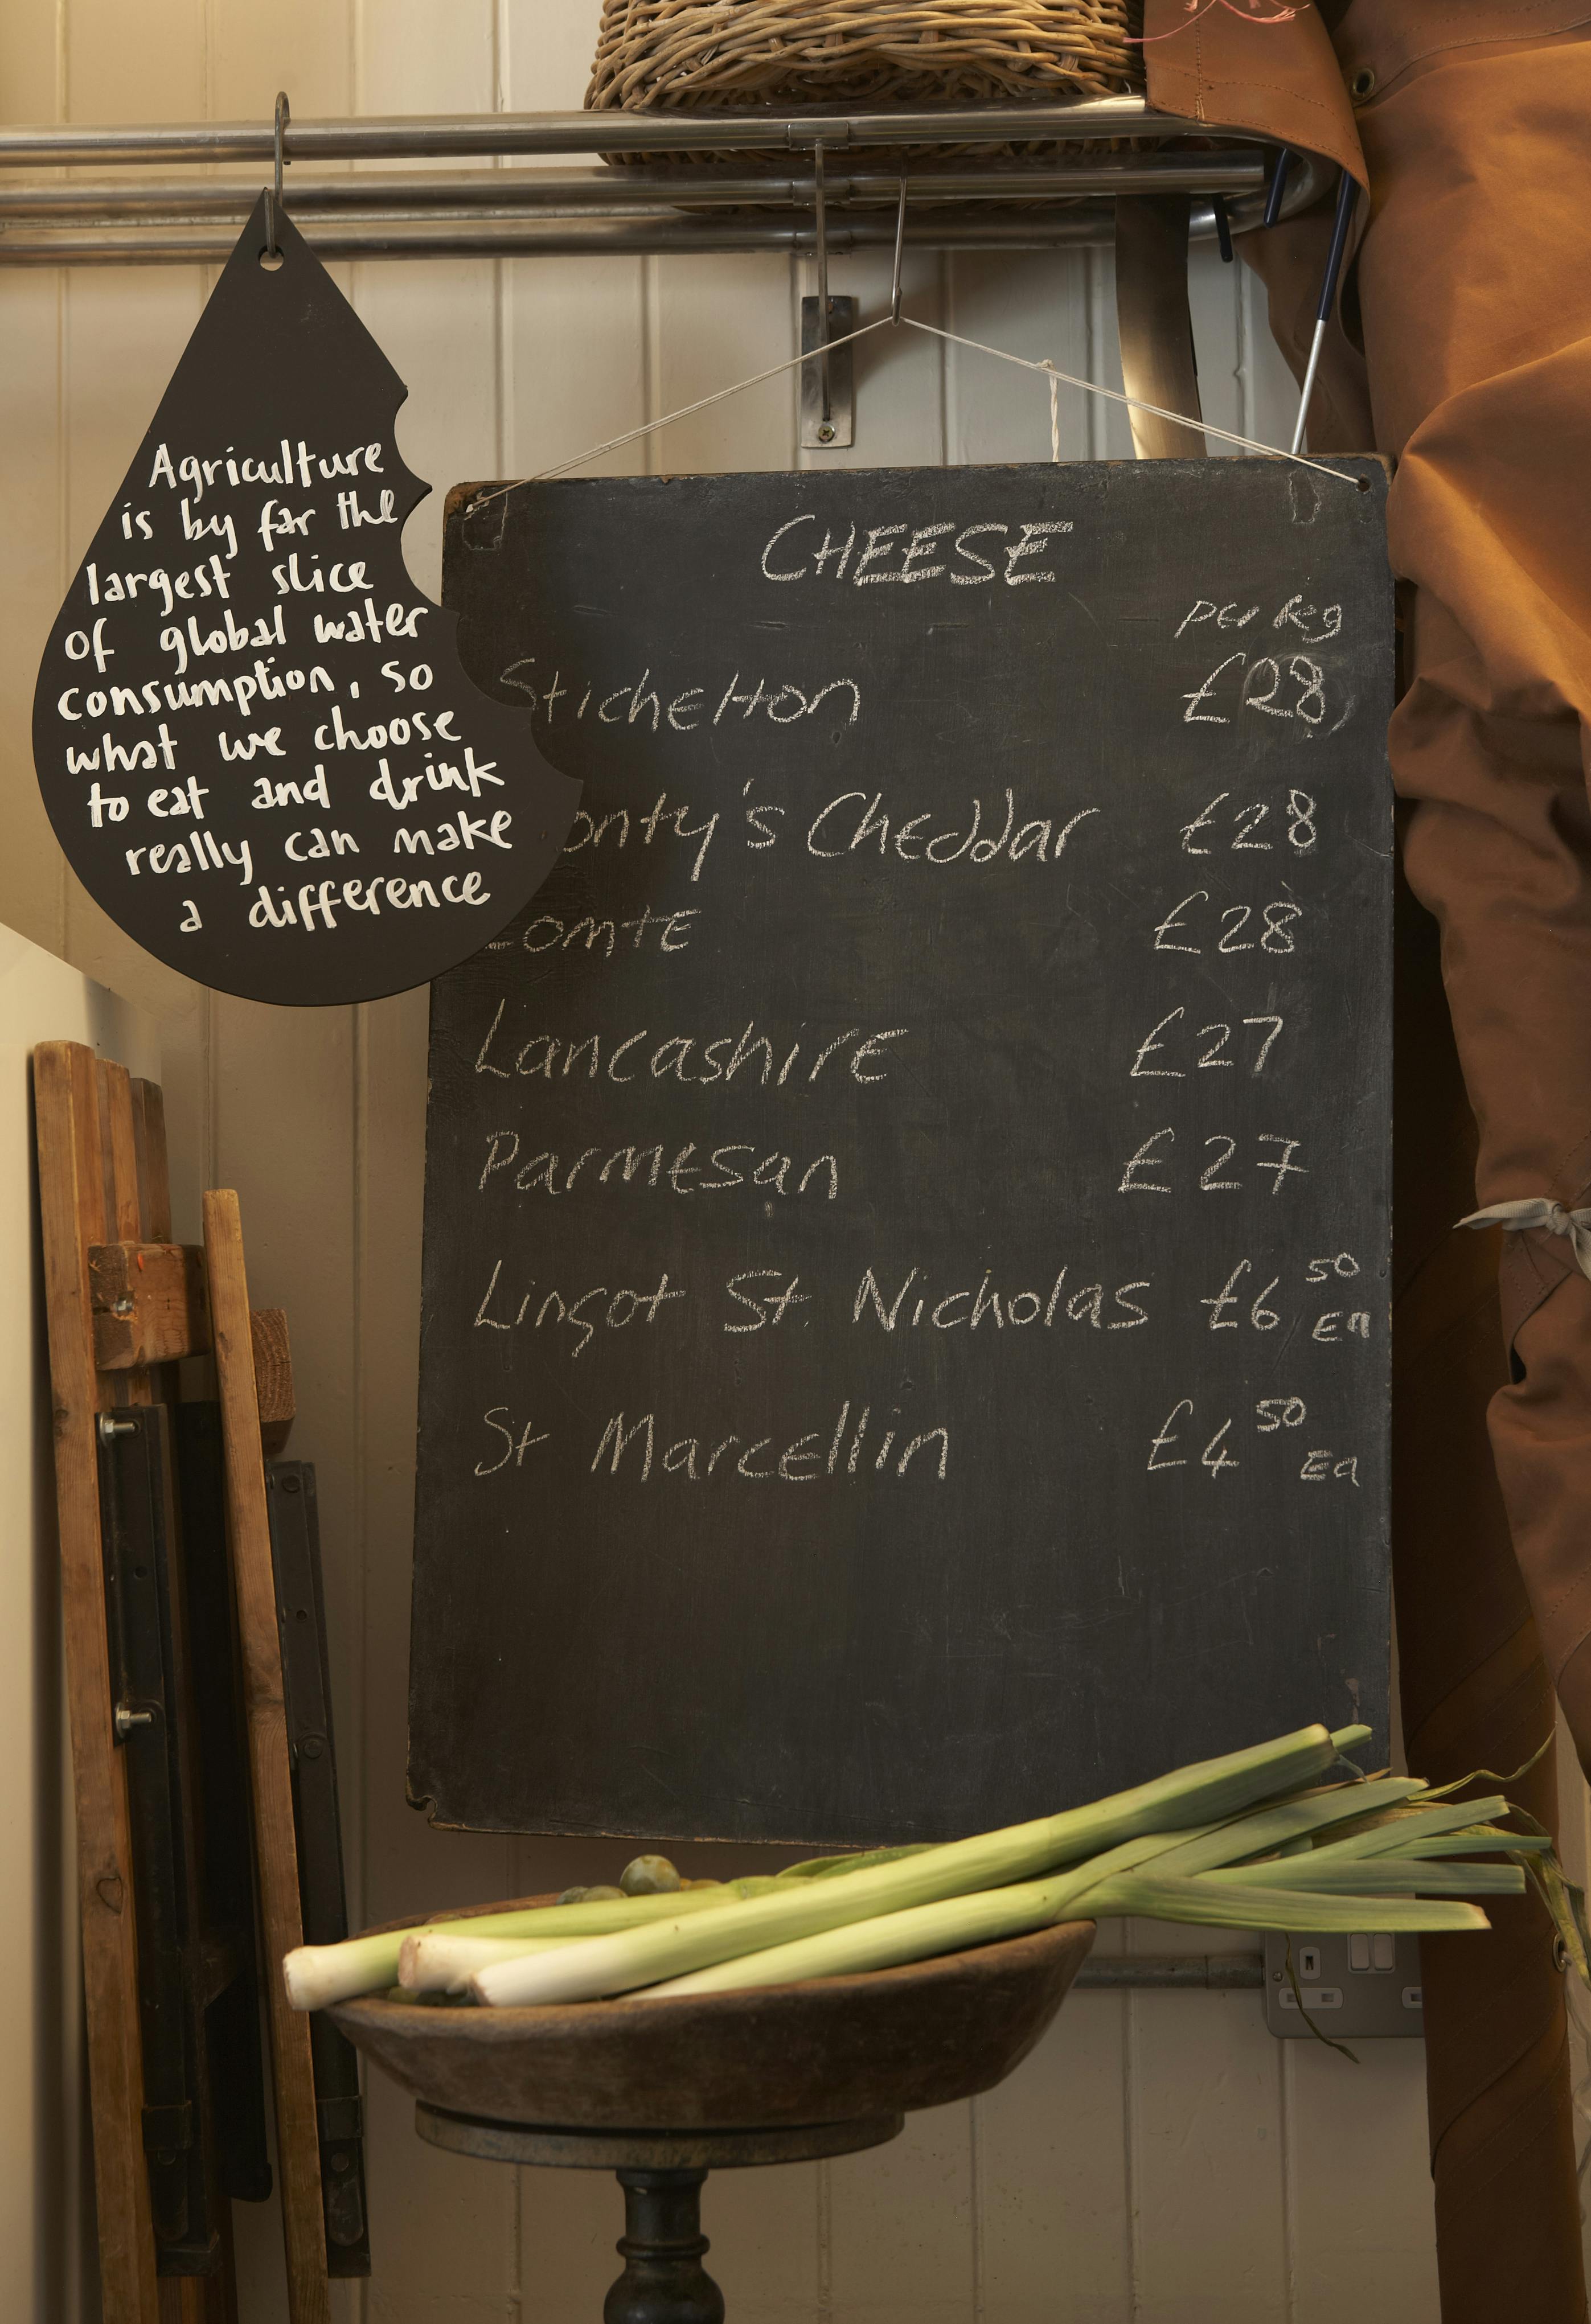 Agriculture
is by far the
largest slice
of global water
consumption, so
what we choose
to eat and drink
really can make
a difference
CHEESE
per kg
Stichelton £28
onty's Cheddar £28
omtE £28
LancashirE £27
ParmEsan £27
Lingot St. Nicholas £6 50 Ea
St Marcellin £4 50 Ea